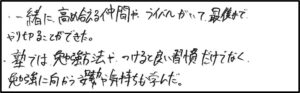 ・一緒に、高め合える仲間や ライバルがいて、最後まで
やり切ることができた。
・塾では 勉強方法や つけると良い習慣だけでなく、
勉強に向かう姿勢や気持ちも学んだ。